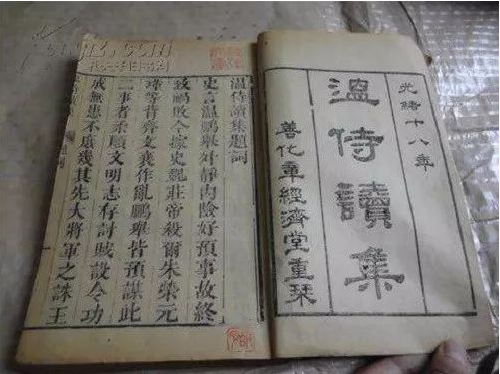 光緒十八年
溫侍讀集
善化章經濟堂重栞
溫侍讀集題詞
史言溫鵬舉外靜內險好預事故終
致禍敗今據史魏莊帝殺爾朱榮元
瑾等背齊文襄作亂鵬舉皆預謀此
二事者柔順文明志存討賊設令功
成無患不庶幾其先大將軍之誅王